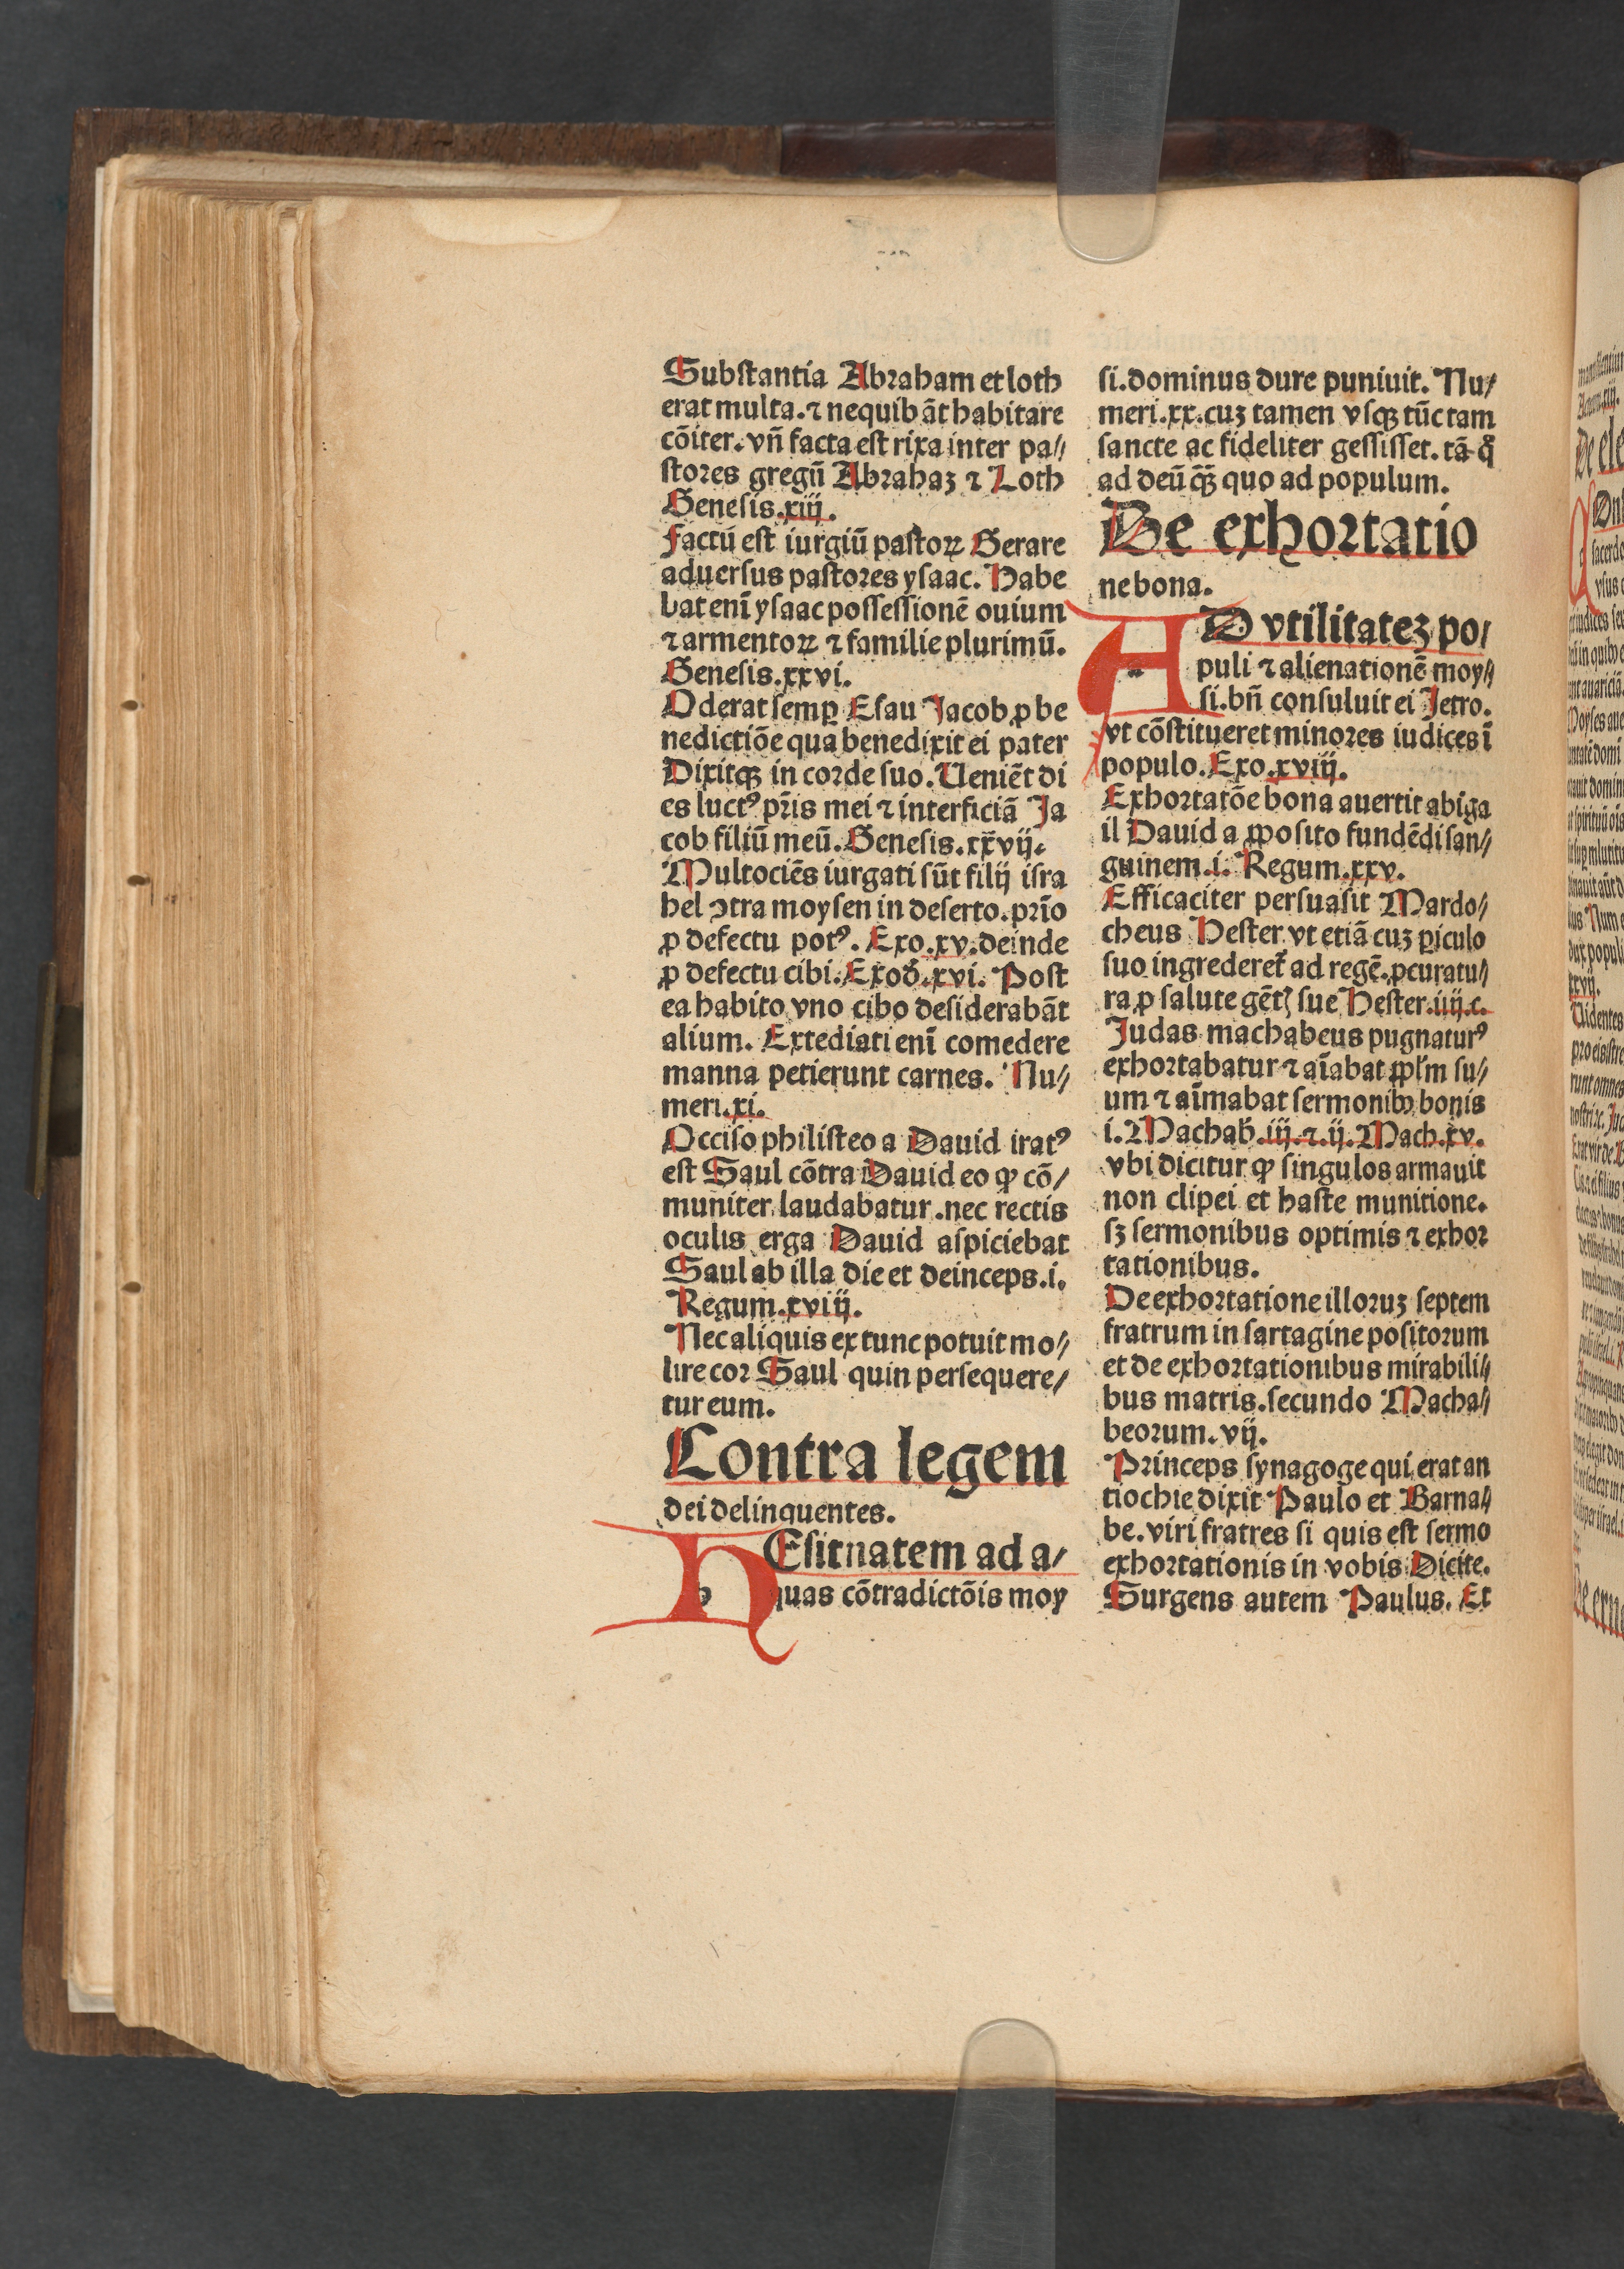 Substantia Abraham et loth
erat multa. ⁊ nequibāt habitare
cōiter. vn̄ facta est rixa inter pa⸗
stores gregū Abrahaz ⁊ Loth
Genesis.xiij.
Factū est iurgiū pastoꝝ Gerare
aduersus pastores ysaac. Habe
bat enī ysaac possessionē ouium
⁊ armentoꝝ ⁊ familie plurimū.
Genesis.xxvi.
Oderat semꝑ Esau Jacob ꝓ be
nedictiōe qua benedixit ei pater
Dixitqꝫ in corde suo. Ueniēt di
es luctꝰ pr̄is mei ⁊ interficiā Ja
cob filiū meū. Genesis.xxvij.
Multociēs iurgati sūt filij isra
hel ↄtra moysen in deserto. prīo
ꝓ defectu potꝰ. Exo.xv. deinde
ꝓ defectu cibi. Exod̓.xvi. Post
ea habito vno cibo desiderabāt
alium. Extediati enī comedere
manna petierunt carnes. Nu⸗
meri.xi.
Occiso philisteo a Dauid iratꝰ
est Saul cōtra Dauid eo ꝙ cō⸗
muniter laudabatur. nec rectis
oculis erga Dauid aspiciebat
Saul ab illa die et deinceps.i.
Regum.xviij.
Nec aliquis ex tunc potuit mo⸗
lire cor Saul quin persequere⸗
tur eum.
Contra legem
dei delinquentes.
HEsitnatem ad a⸗
quas cōtradictōis moy
si. dominus dure puniuit. Nu⸗
meri.xx. cuz tamen vsqꝫ tūc tam
sancte ac fideliter gessisset. tā q̊
ad deū qꝫ̄ quo ad populum.
De exhortatio
ne bona.
AD vtilitatez po⸗
puli ⁊ alienationē moy⸗
si. bn̄ consuluit ei Jetro.
vt cōstitueret minores iudices ī
populo. Exo.xviij.
Exhortatōe bona auertit abiga
il Dauid a ꝓposito fundēdi san⸗
guinem.i. Regum.xxv.
Efficaciter persuasit Mardo⸗
cheus Hester vt etiā cuz ꝑiculo
suo ingrederet̄ ad regē. ꝓcuratu⸗
ra ꝓ salute gēt; sue Hester.iiij.c.
Judas machabeus pugnaturꝰ
exhortabatur ⁊ aīabat ꝓpl̄m su⸗
um ⁊ aīmabat sermonibꝫ bonis
i. Machab̓.iij.⁊.ij. Mach.xv.
vbi dicitur ꝙ singulos armauit
non clipei et haste munitione.
sꝫ sermonibus optimis ⁊ exhor
tationibus.
De exhortatione illoruz septem
fratrum in sartagine positorum
et de exhortationibus mirabili⸗
bus matris. secundo Macha⸗
beorum. vij.
Princeps synagoge qui erat an
tiochie dixit Paulo et Barna⸗
be. viri fratres si quis est sermo
exhortationis in vobis Dicite.
Surgens autem Paulus. Et